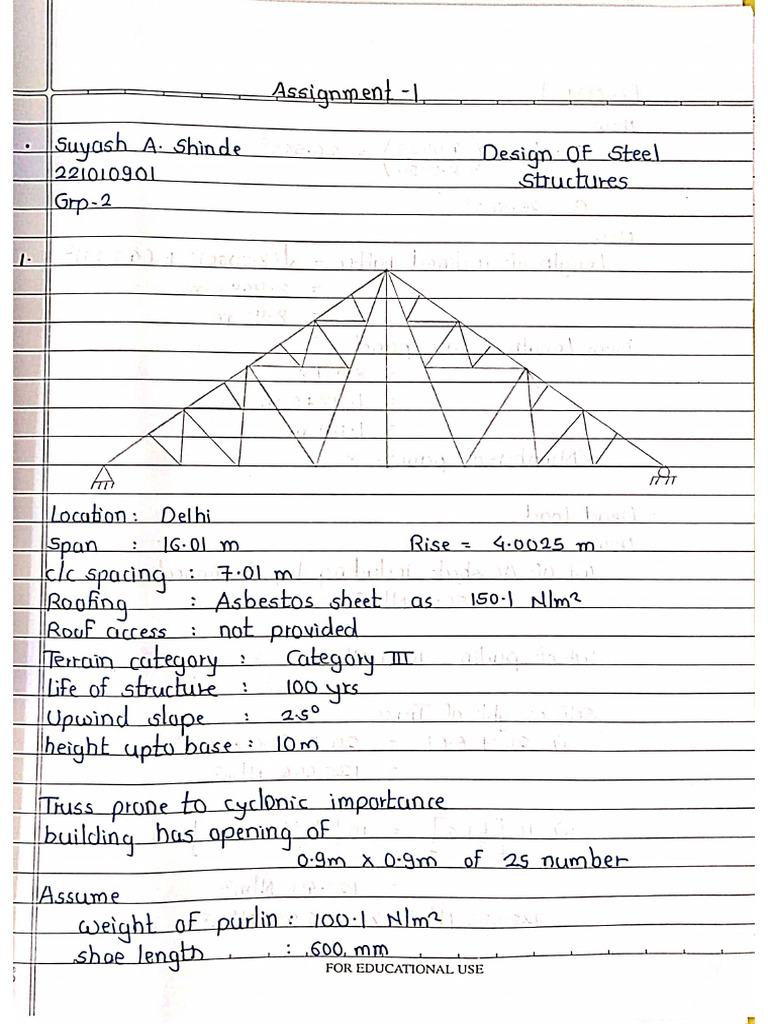 Assignment -1
Suyash A. Shinde
Design OF Steel
221010901
Structures
Grp-2
1.
Location : Delhi
Span : 16.01 m Rise = 4.0025 m
c/c spacing : 7.01 m
Roofing : Asbestos sheet as 150.1 N/m²
Roof access : not provided
Terrain category : Category III
life of structure : 100 yrs
Upwind slope : 2.5°
height upto base : 10m
Truss prone to cyclonic importance
building has opening of
0.9m x 0.9m of 25 number
Assume
weight of purlin : 100.1 N/m²
shoe length : 600 mm
FOR EDUCATIONAL USE